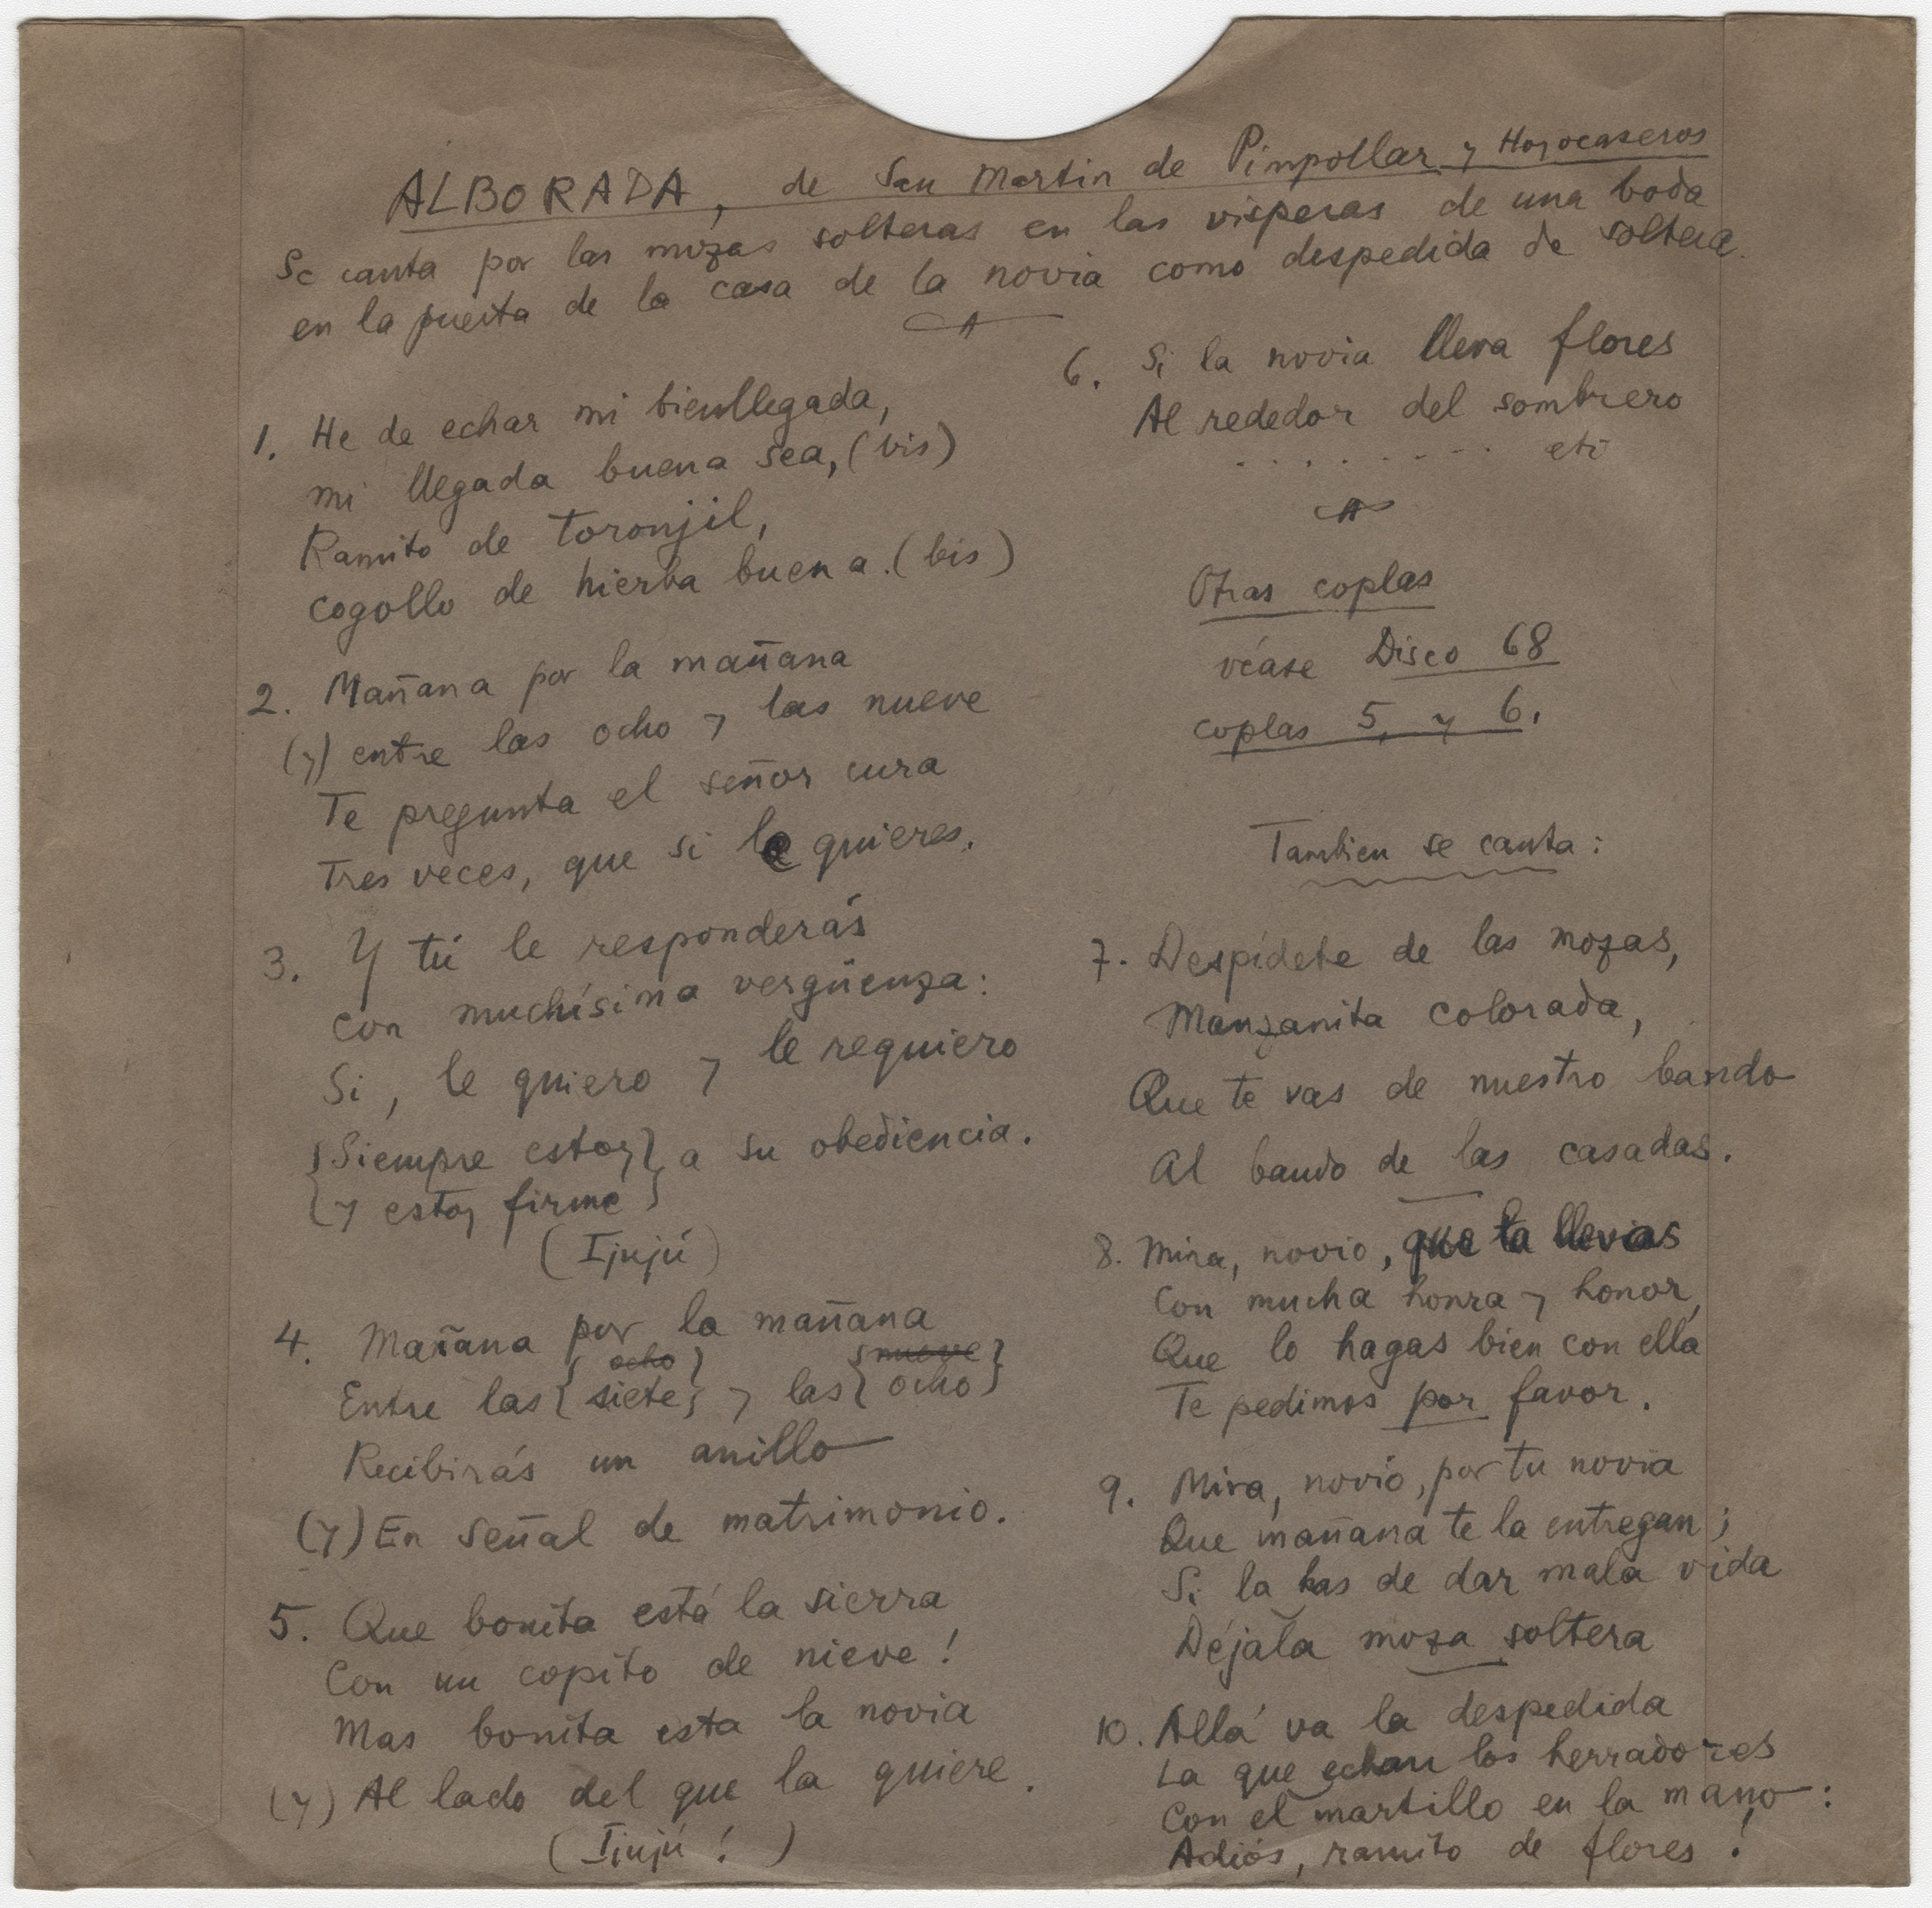 ALBORADA, de San Martin de Pimpollar y Hoyocaseros
Se canta por las mozas solteras en las visperas de una boda
en la puerta de la casa de la novia como despedida de soltera.
1. He de echar mi bienllegada,
mi llegada buena sea, (bis)
Ramito de toronjil,
cogollo de hierba buena. (bis)
2. Mañana por la mañana
(y) entre las ocho y las nueve
Te pregunta el señor cura
tres veces, que si le quieres.
3. Y tú le responderás
con muchísima vergüenza:
Si, le quiero y le requiero
{Siempre estoy} a su obediencia.
{y estoy firme}
(Ijujú)
4. Mañana por la mañana
{ocho} {nueve}
Entre las {siete} y las {ocho}
Recibirás un anillo
(y) En señal de matrimonio.
5. Que bonita está la sierra
Con un copito de nieve!
Mas bonita esta la novia
(y) Al lado del que la quiere.
(Ijujú!)
6. Si la novia lleva flores
Al rededor del sombrero
. . . . . . . . etc
Otras coplas
véase Disco 68
coplas 5, y 6.
Tambien se canta:
7. Despídete de las mozas,
Manzanita colorada,
Que te vas de nuestro bando
Al bando de las casadas.
8. Mira, novio, que la llevas
Con mucha honra y honor,
Que lo hagas bien con ella
Te pedimos por favor.
9. Mira, novio, por tu novia
Que mañana te la entregan;
Si la has de dar mala vida
Déjala moza soltera
10. Allá va la despedida
La que echan los herradores
Con el martillo en la mano:
Adiós, ramito de flores!